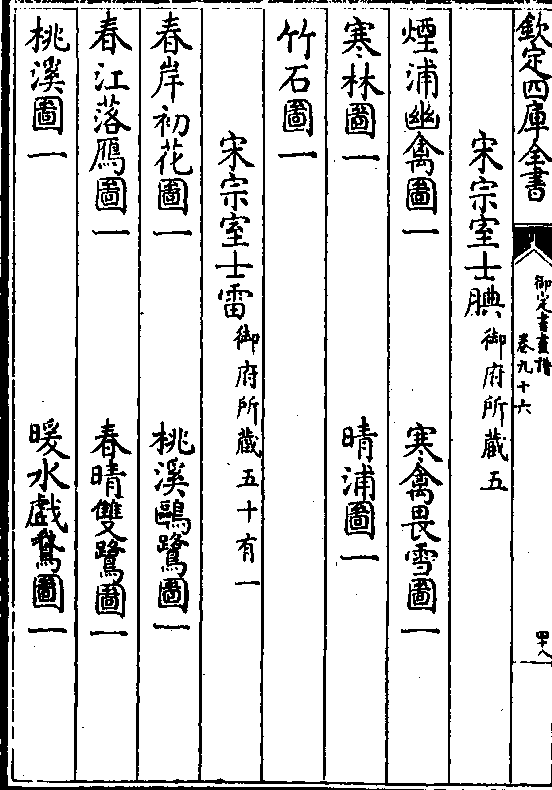 欽定四庫全書
御定書畫譜
卷九十六
四十八
宋宗室士腆御府所藏五
煙浦幽禽圖一 寒禽畏雪圖一
寒林圖一 晴浦圖一
竹石圖一
宋宗室士雷御府所藏五十有一
春岸初花圖一 桃溪鷗鷺圖一
春江落鴈圖一 春晴雙鷺圖一
桃溪圖一 暖水戲鵞圖一